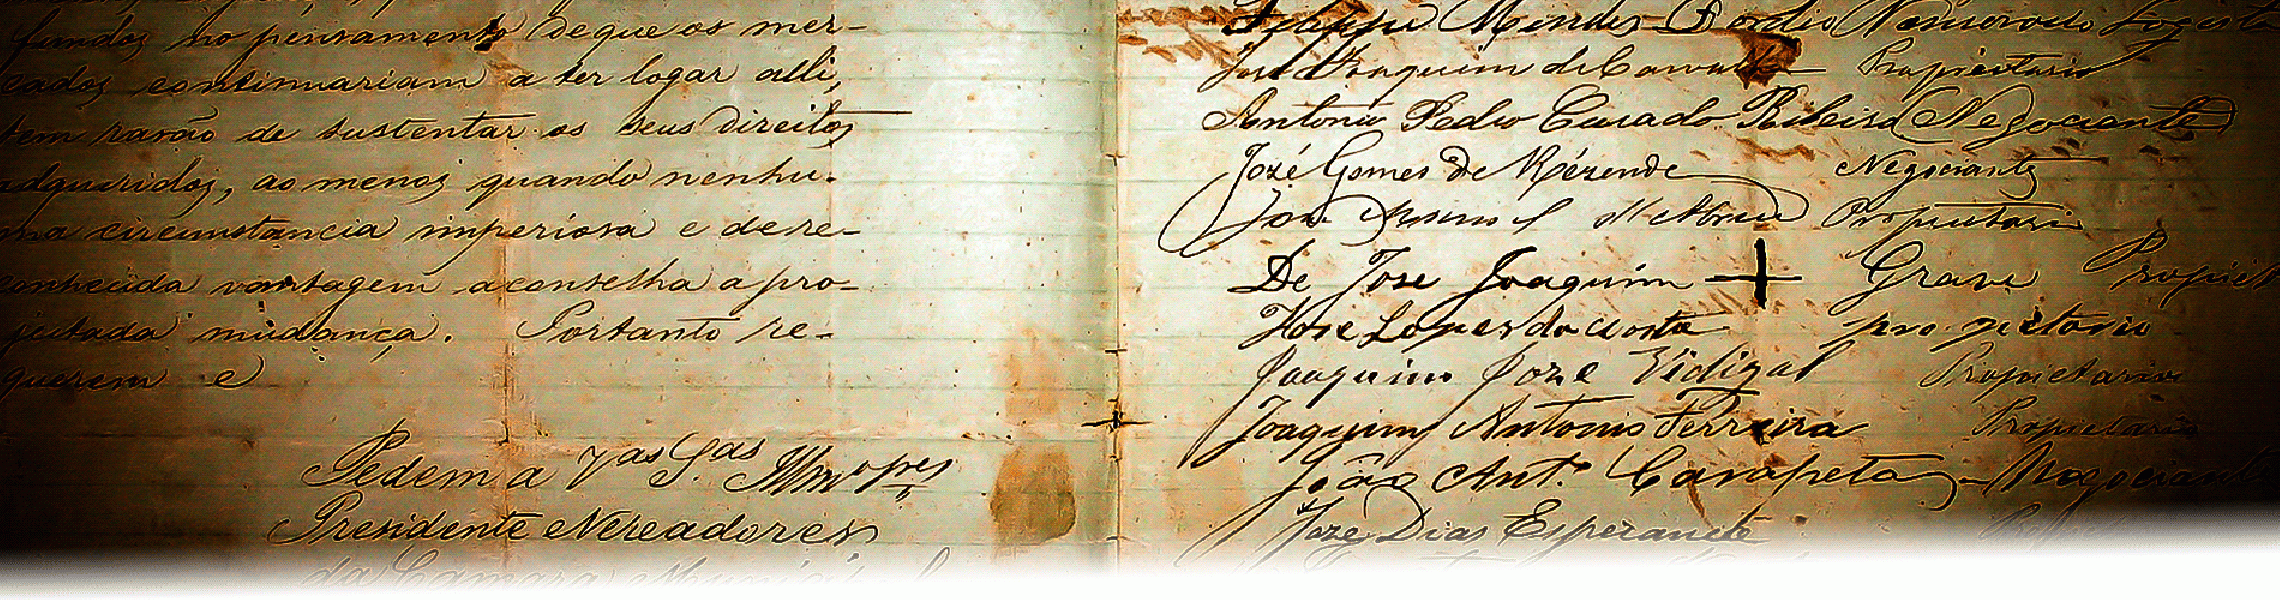 fundos no pensamento de que os mer-
cados continuariam a ter logar alli,
tem razão de sustentar os seus direitos
adqueridos, ao menos quando nenhu-
ma circumstancia imperiosa e de re-
conhecida vantagem aconselha a pro-
jectada mudança. Portanto re-
querem e
Pedem a V.as S.as Illm.os
Presidente e Vereadores
da Camara Municipal
Filippe Mendes
José Joaquim de Carvalho Propietario
Antonio Pedro Casado Ribeiro Negociante
José Gomes de Rézende Negociante
d'Abreu Propietari
De Jose Joaquim + Grave Propiet
Jose Lopes da Costa propietario
Joaquim Jose Vidigal Propietario
Joaquim Antonio Ferreira Propietario
João Ant.º Carapeta Negociante
Joze Dias Esperancite